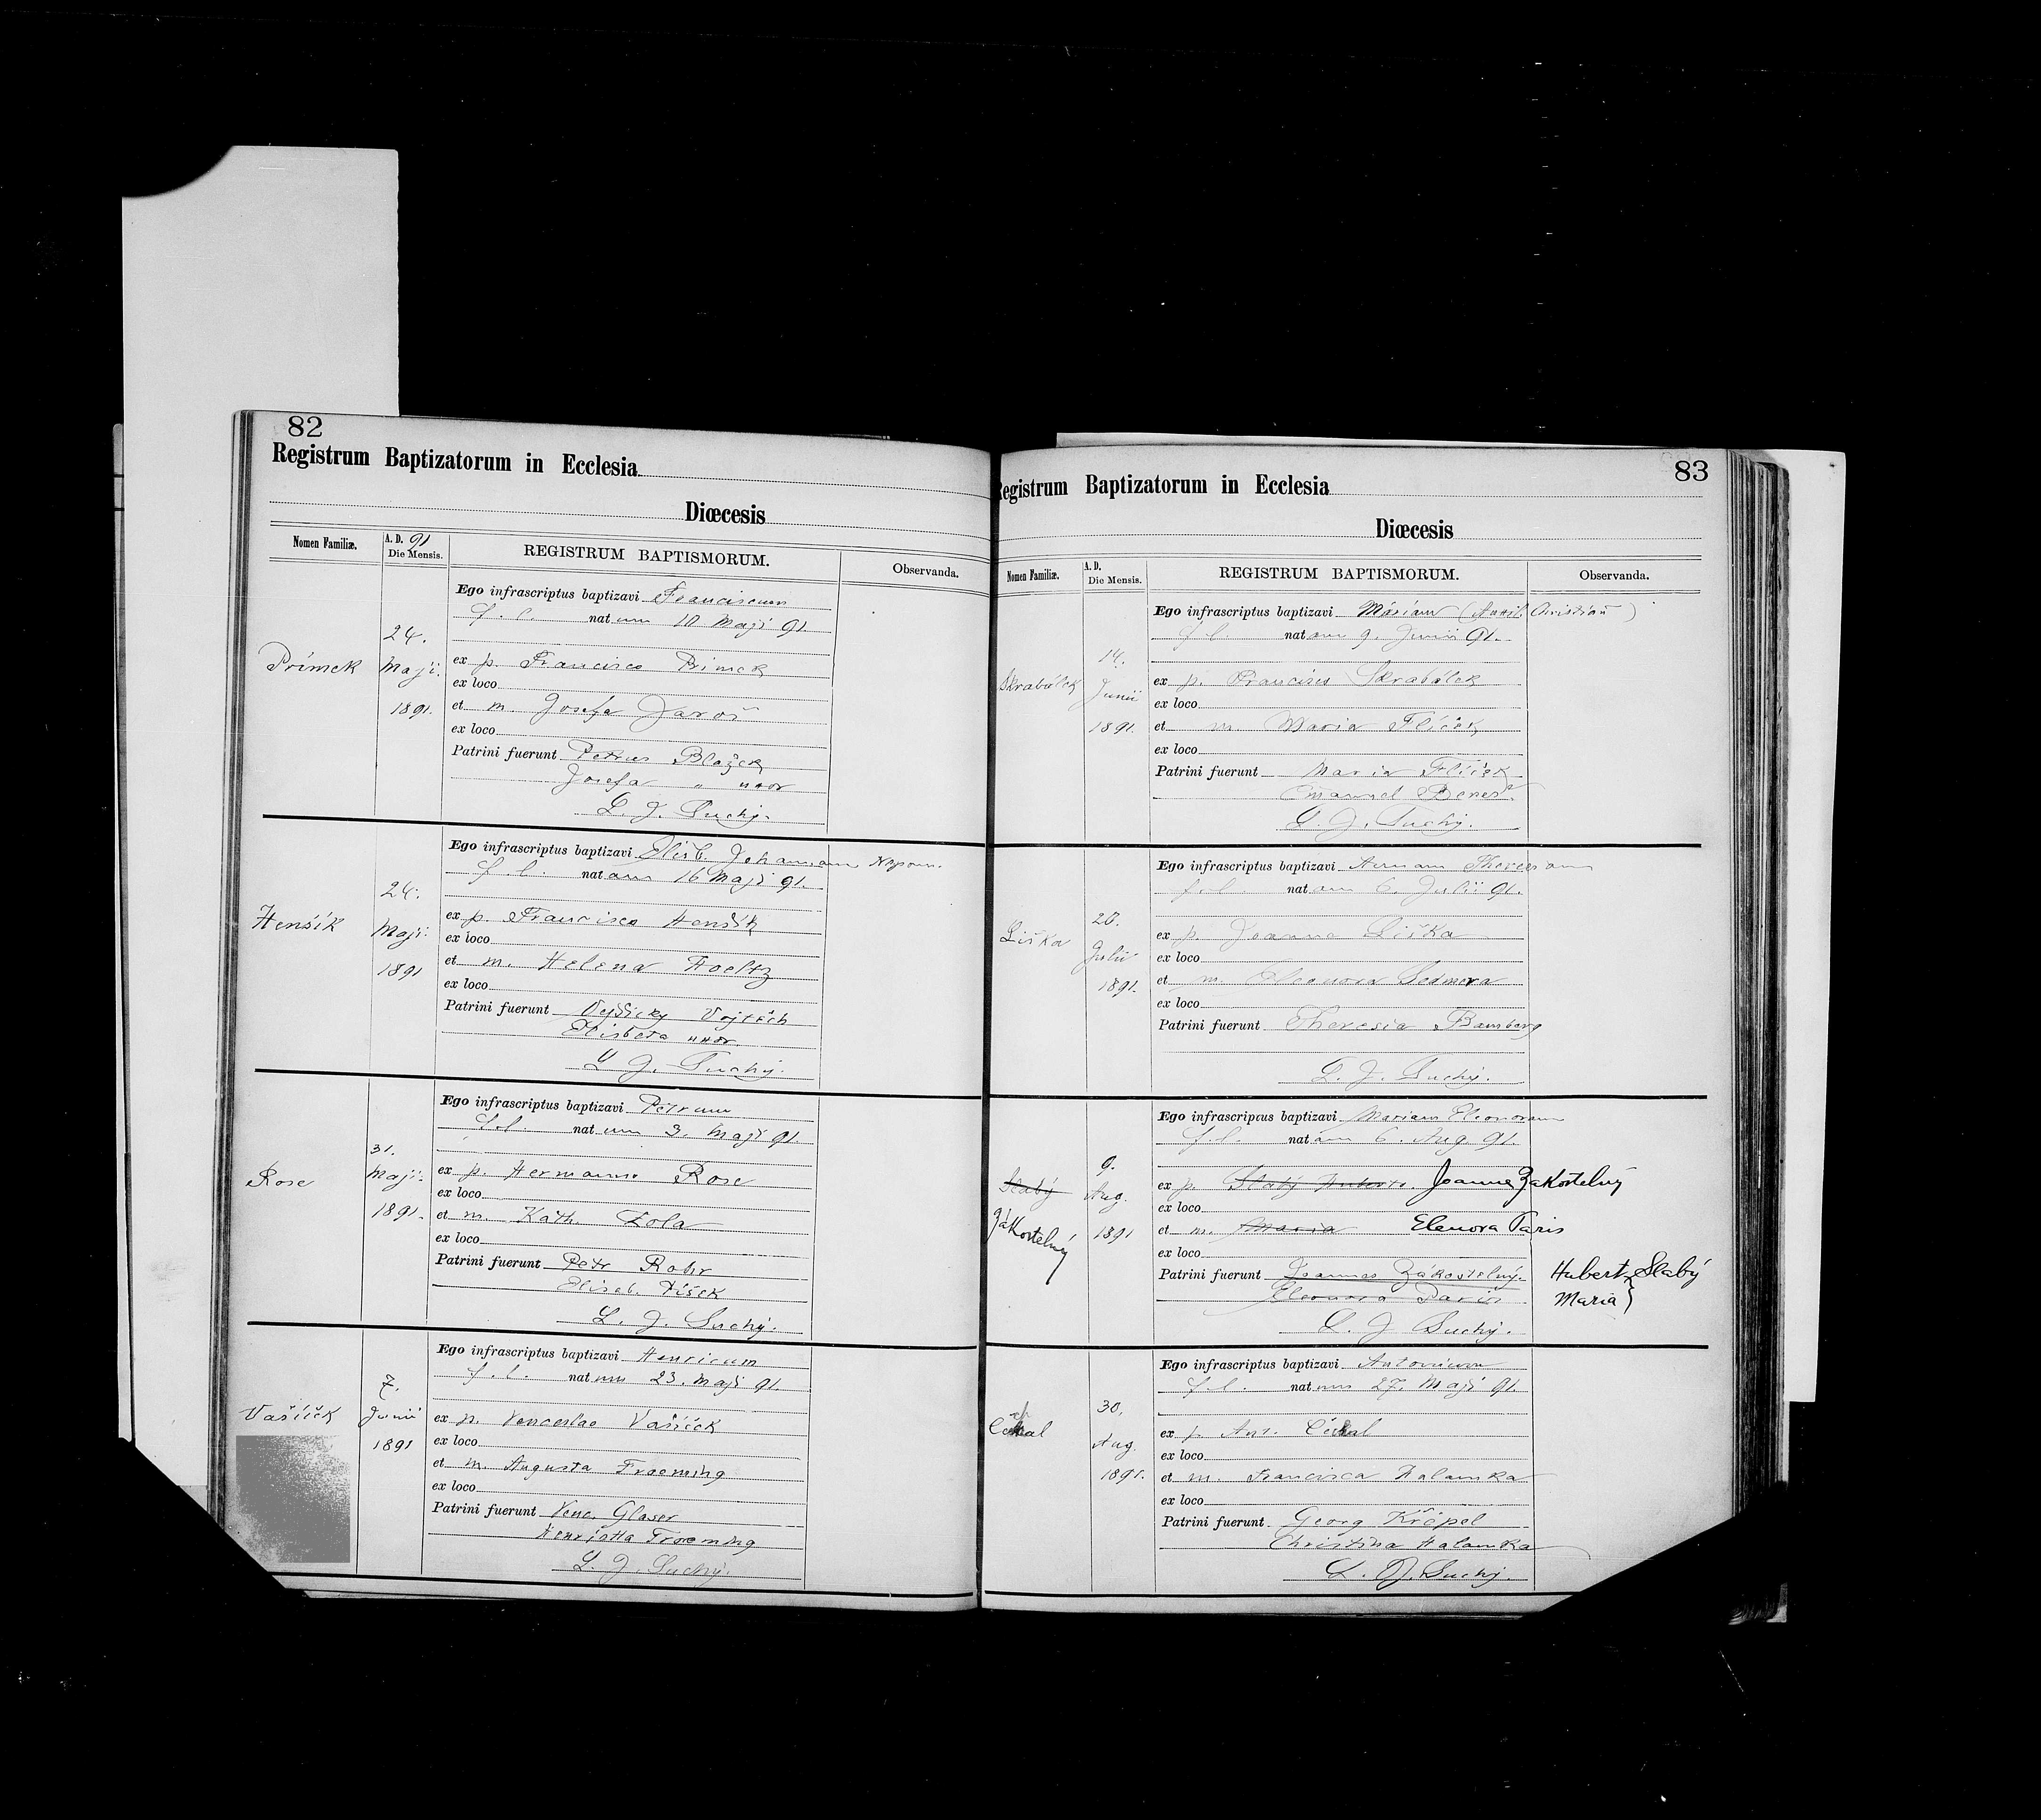 82
Registrum Baptizatorum in Ecclesia
Diœcesis
Nomen Familiæ.
A. D. 91
Die Mensis.
REGISTRUM BAPTISMORUM.
Observanda.
Prímek
24.
Maji.
1891.
Ego infrascriptus baptizavi Franciscum
f. l. natum 10 Maji 91.
ex p. Francisco Primek
ex loco
et m. Josefa Jaroš
ex loco
Patrini fuerunt Petrus Blažek
Josefa " uxor
L. J. Suchý.
Henšík
24.
Maji.
1891
Ego infrascriptus baptizavi Elisb. Johannam Nepom.
f. l. natam 16 Maji 91.
ex p. Francisco Henšík
ex loco
et m. Helena Hoeltz
ex loco
Patrini fuerunt Vojtěch
Elisbeta uxor.
L. J. Suchý.
Rose
31.
Maji.
1891.
Ego infrascriptus baptizavi Petrum
f. l. natum 3. Maji 91.
ex p. Hermanno Rose
ex loco
et m. Kath. Lola
ex loco
Patrini fuerunt Petr
Eliseb.
L. J. Suchý.
Vašíček
7.
Junii
1891
Ego infrascriptus baptizavi Henricum
f. l. natum 23. Maji 91.
ex p. Venceslao Vašíček
ex loco
et m. Augusta Froeming
ex loco
Patrini fuerunt Venc. Glaser
Henrietta Froeming
L. J. Suchý.
83
Registrum Baptizatorum in Ecclesia
Diœcesis
Nomen Familiæ.
A. D.
Die Mensis.
REGISTRUM BAPTISMORUM.
Observanda.
Skrabálek
14.
Junii
1891.
Ego infrascriptus baptizavi Mariam (Auxil. Christian)
f. l. natam 9. Junii 91.
ex p. Francisco Skrabálek
ex loco
et m. Maria Flíček
ex loco
Patrini fuerunt Maria Flíček
Emanuel Beneš
L. J. Suchý.
Liška
20.
Julii
1891.
Ego infrascriptus baptizavi Annam Theresiam
f. l. natam 6. Julii 91.
ex p. Joanne Liška
ex loco
et m. Eleonora Sedmera
ex loco
Patrini fuerunt Theresia Bamberg
L. J. Suchý.
Slabý
Zákostelný
9.
Aug.
1891
Ego infrascriptus baptizavi Mariam Eleonoram
f. l. natam 6. Aug. 91.
ex p. Slabý Huberto. Joanne Zakostelný
ex loco
et m. Maria Elenora Paris
ex loco
Patrini fuerunt Joannes Zákostelný. Hubert } Slabý
Eleonora Paris Maria }
L. J. Suchý.
30.
Aug.
1891.
Ego infrascriptus baptizavi Antonium
f. l. natum 27. Maji 91.
ex p. Ant.
ex loco
et m. Francisca Halamka
ex loco
Patrini fuerunt Georg Křápel
Christina Halamka
L. J. Suchý.